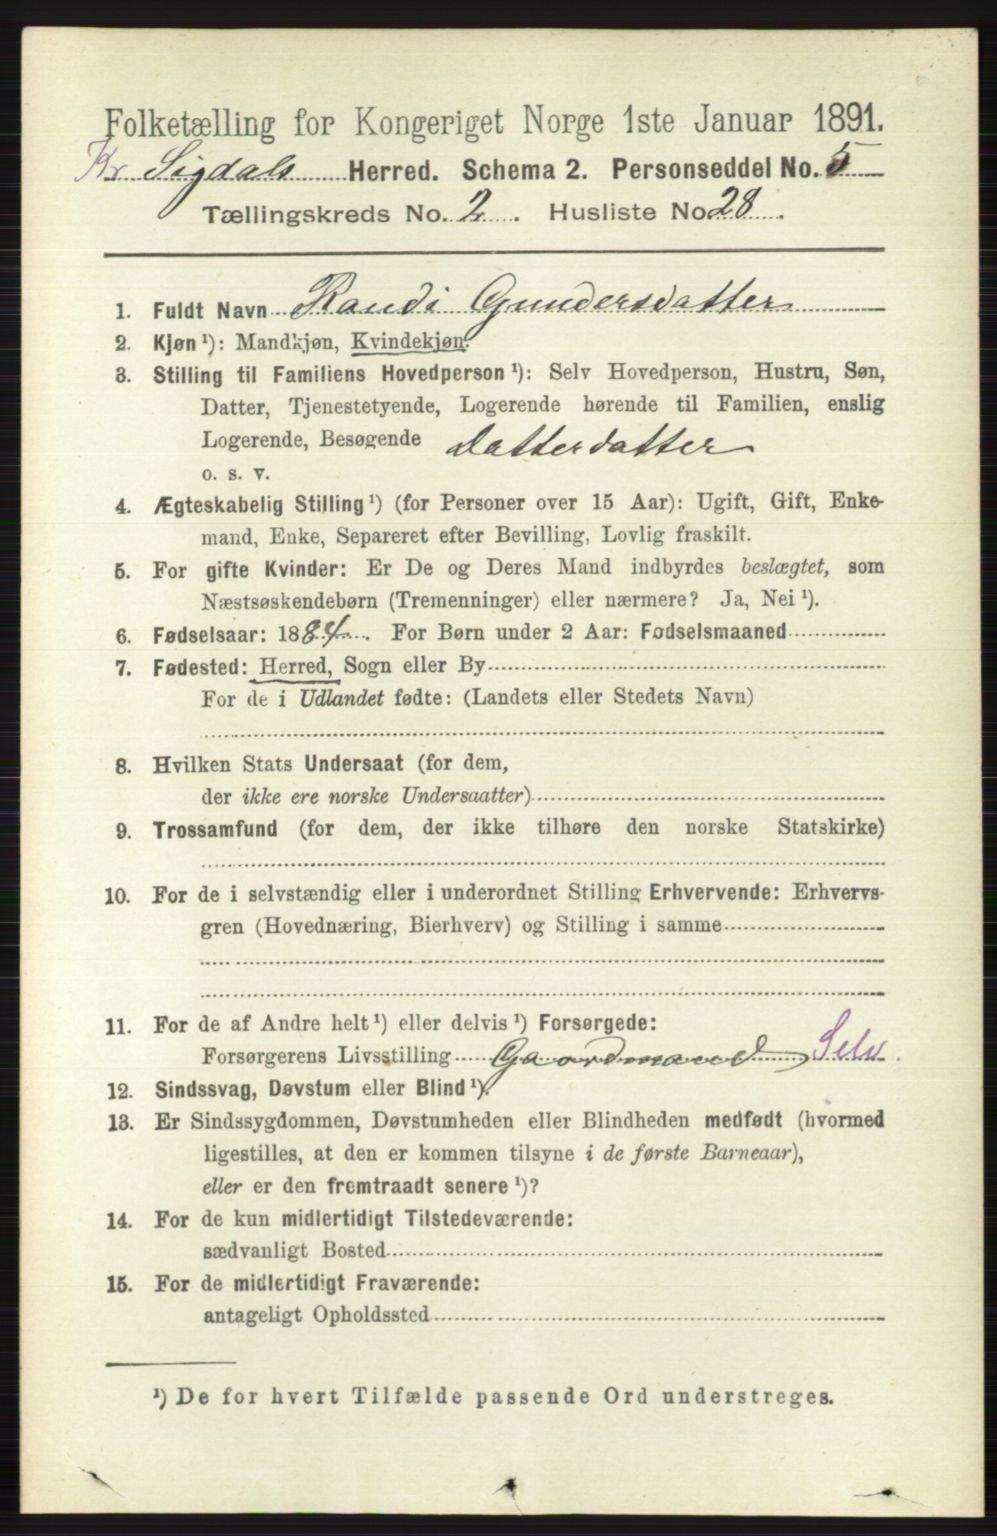 Folketælling for Kongeriget Norge 1ste Januar 1891.
Kr Sigdals Herred. Schema 2. Personseddel No. 5
Tællingskreds No. 2. Husliste No 28.
1. Fuldt Navn Randi Gundersdatter
2. Kjøn ¹): Mandkjøn, Kvindekjøn.
3. Stilling til Familiens Hovedperson ¹): Selv Hovedperson, Hustru, Søn,
Datter, Tjenestetyende, Logerende hørende til Familien, enslig
Logerende, Besøgende Datterdatter
o. s. v.
4. Ægteskabelig Stilling ¹) (for Personer over 15 Aar): Ugift, Gift, Enke-
mand, Enke, Separeret efter Bevilling, Lovlig fraskilt.
5. For gifte Kvinder: Er De og Deres Mand indbyrdes beslægtet, som
Næstsøskendebørn (Tremenninger) eller nærmere? Ja, Nei ¹).
6. Fødselsaar: 1884. For Børn under 2 Aar: Fødselsmaaned
7. Fødested: Herred, Sogn eller By
For de i Udlandet fødte: (Landets eller Stedets Navn)
8. Hvilken Stats Undersaat (for dem,
der ikke ere norske Undersaatter)
9. Trossamfund (for dem, der ikke tilhøre den norske Statskirke)
10. For de i selvstændig eller i underordnet Stilling Erhvervende: Erhvervs-
gren (Hovednæring, Bierhverv) og Stilling i samme
11. For de af Andre helt ¹) eller delvis ¹) Forsørgede:
Forsørgerens Livsstilling Gaardmand Selv.
12. Sindssvag, Døvstum eller Blind ¹).
13. Er Sindssygdommen, Døvstumheden eller Blindheden medfødt (hvormed
ligestilles, at den er kommen tilsyne i de første Barneaar),
eller er den fremtraadt senere ¹)?
14. For de kun midlertidigt Tilstedeværende:
sædvanligt Bosted
15. For de midlertidigt Fraværende:
antageligt Opholdssted
¹) De for hvert Tilfælde passende Ord understreges.